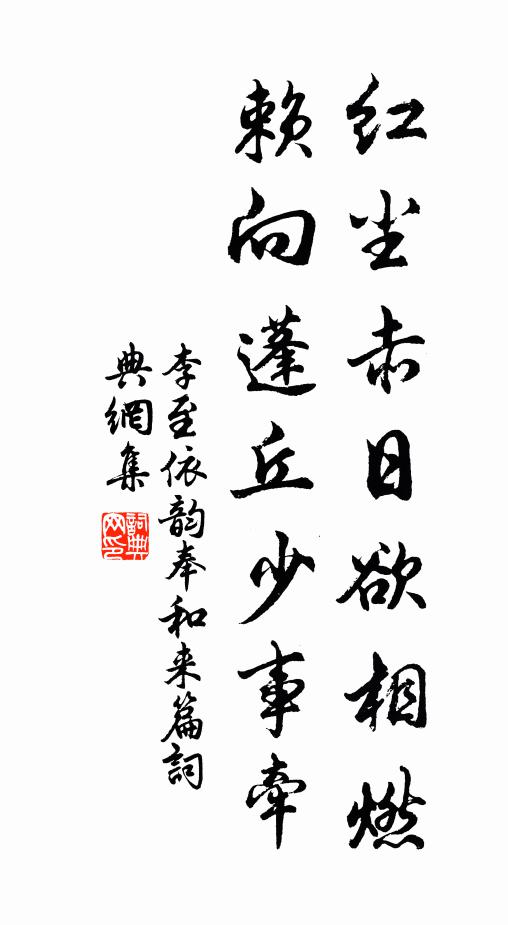 红尘赤日欲相燃
赖向蓬丘少事牵
李至依韵奉和来篇詞
典網集
詞典網印